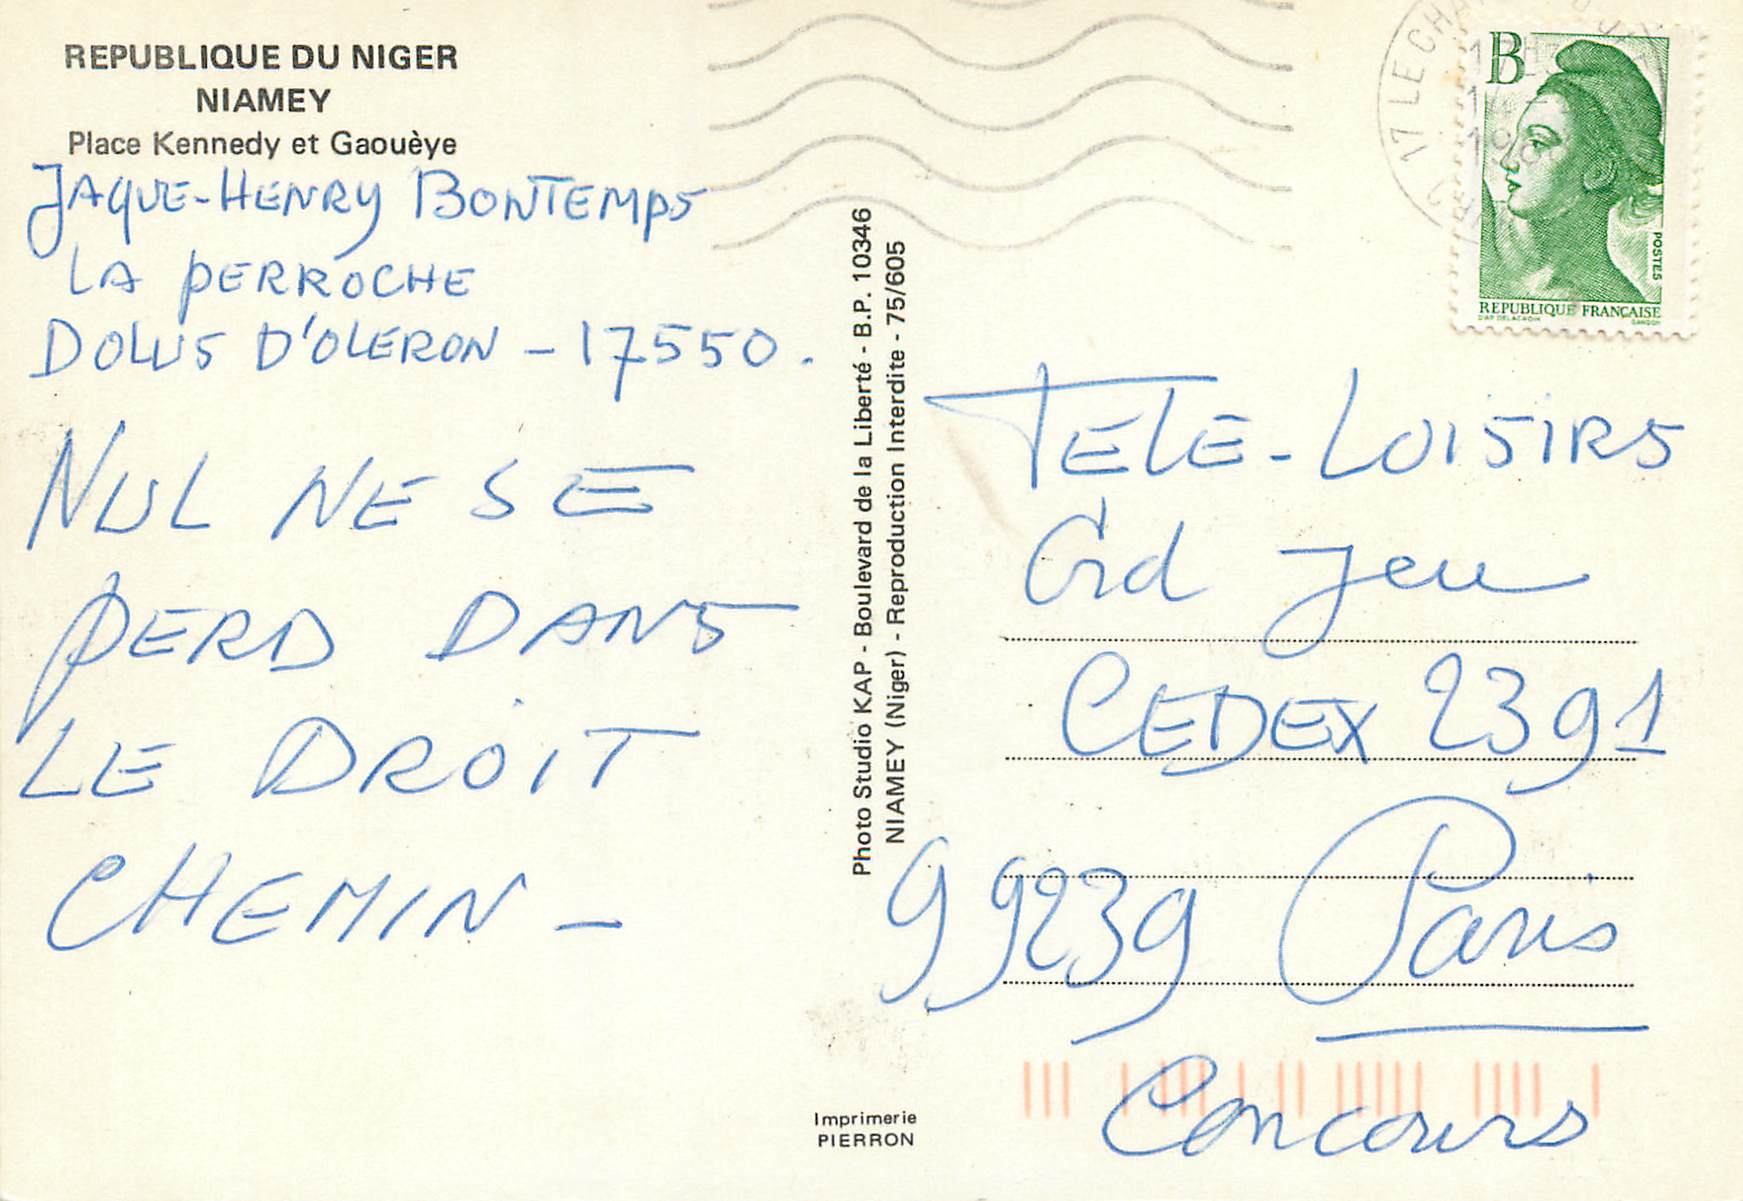 REPUBLIQUE DU NIGER
NIAMEY
Place Kennedy et Gaouèye
JAQUE-HENRY BONTEMPS
LA PERROCHE
DOLUS D'OLERON - 17550.
NUL NE SE
PERD DANS
LE DROIT
CHEMIN -
Photo Studio KAP - Boulevard de la Liberté - B.P. 10346
NIAMEY (Niger) - Reproduction Interdite - 75/605
Imprimerie
PIERRON
17 LE CHA
B
POSTES
REPUBLIQUE FRANÇAISE
D'AP DELACROIX GANDON
TELE-LOISIRS
Grd Jeu
CEDEX 2391
99239 Paris
Concours